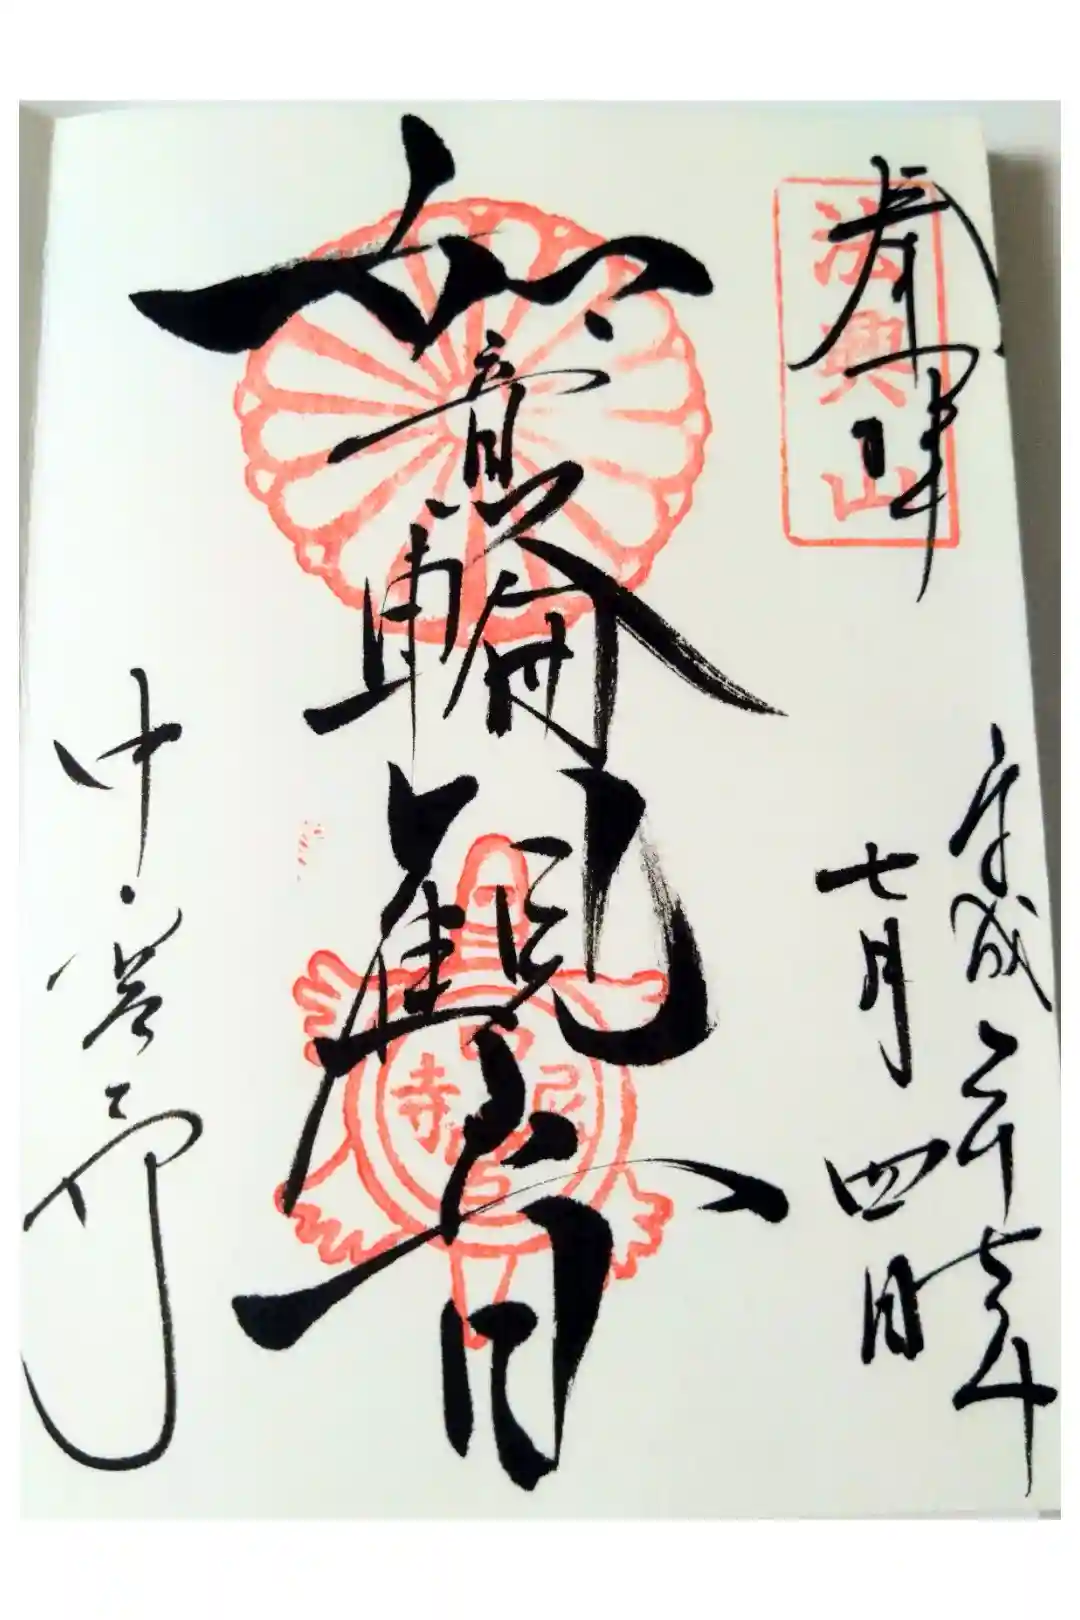 奉拝
法興山
平成二十七年
七月四日
如意輪観音
尼
寺
中宮寺